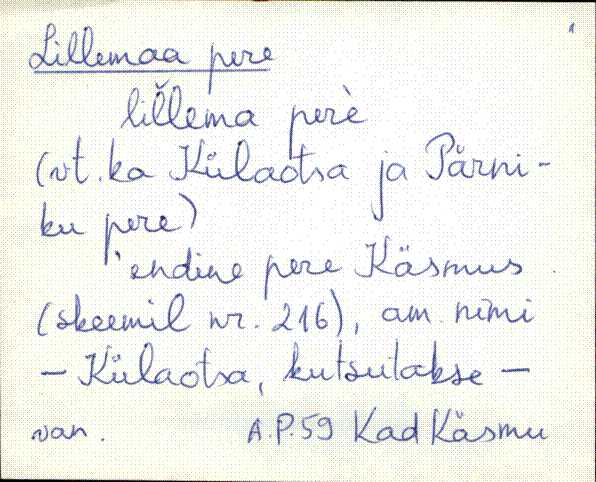 Lillemaa pere
lil̆lema perè
(vt. ka Külaotsa ja Pärni-
ku pere)
'endine pere Käsmus.
(skeemil nr. 216), am. nimi
– Külaotsa, kutsutakse –
van. A.P. 59 Kad Käsmu